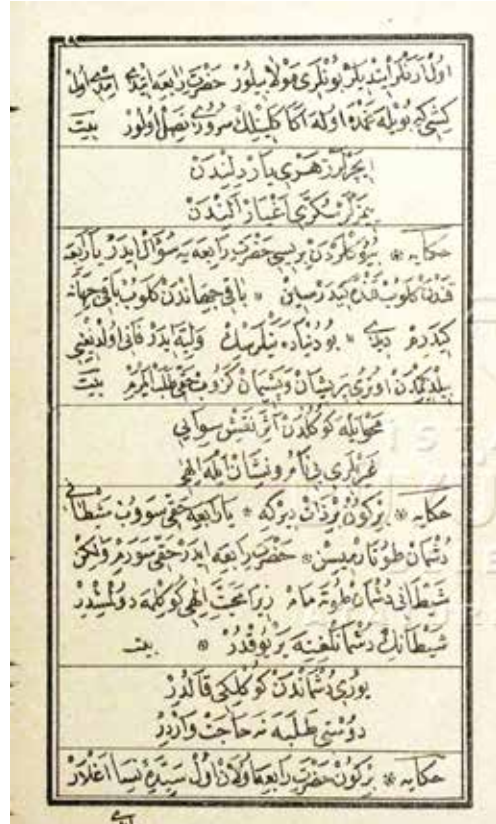 اولدر آنلر ايتديلر بونلرى مولا بيلور حضرت رابعه ايتدى ايمدى اول
كشى كه بويله غمده اوله اكا كلبلك سرورى نصل اولور بيت
ايچرلر زهرى يار دلندن
يمزلر سكرى اغيار الندن
حكايه * بيوكلردن بريسى حضرت رابعه يه سؤال ايدر يا رابعه
قندن كلوب قنده كيدرسن * باقى جهاندن كلوب باقى جهانه
كيدرم ديدى * بو دنياده نيلرسك وليه ايدر فانى اولديغنى
بيلديكمدن اوترى پريشان و پشيمان كزوب حقى طلب ايلرم بيت
محو ايله كوكلدن اثر نقش سوايى
غيرلرى بى نام و نشان ايله الهى
حكايه * بركون بر ذات ديركه * يا رابعه حقى سووب شيطانى
دشمان طوتارميسن * حضرت رابعه ايدر حقى سورم ولكن
شيطانى دشمان طوتمامام زيرا محبت الهى كوكلمه دولمشدر
شيطانك دشمانلغينه ير يوقدر * بيت
يورى دشماندن كوكلكى قالدر
دوستى طلبه نه حاجت واردر
حكايه * بركون حضرت رابعه اولان اول سيدۀ نسا اغلار